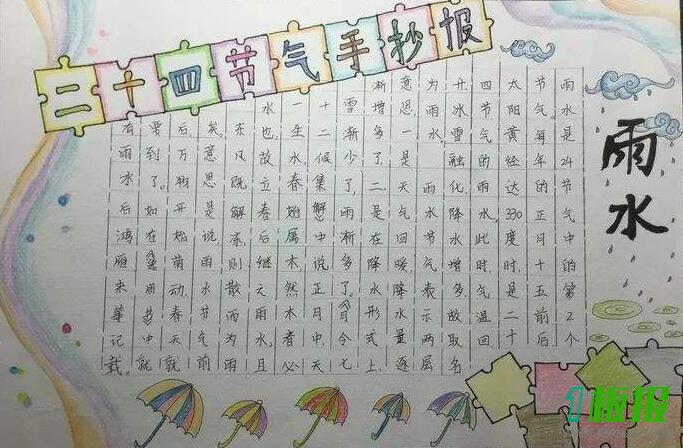 二十四节气手抄报
雨水
雨水是24节气中的第2个
节气。每年的正月十五前后
太阳黄经达330度时,是二十
四节气的雨水。此时,气温回
升、冰雪融化、降水增多,故取名
为雨水。雨水节气表示两层
意思,一是天气回暖,降水量逐
渐增多了,二是在降水形式上,
雪渐少了,雨渐多了。《月令七
十二候集解》中说:正月中,天
一生水。春始属木,然木者必
水也,故立春后继之雨水。且
东风既解冻,则散而为雨
矣。意思是说,雨水节气前
后,万物开始萌动,春天就
要到了。如在《逸周书》中就
有雨水后鸿雁来等记载。
1板报